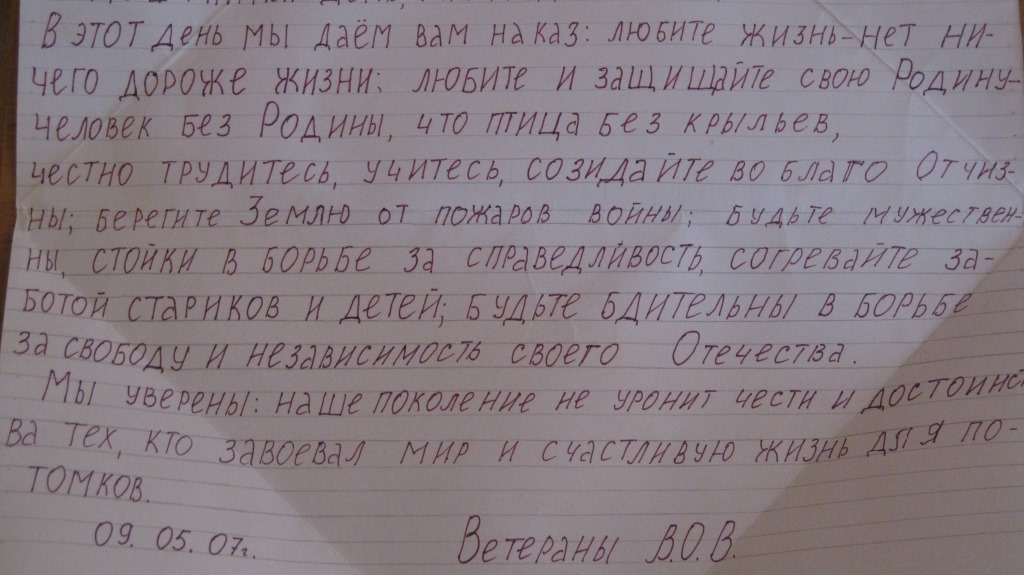 В этот день мы даём вам наказ: любите жизнь-нет ни-
чего дороже жизни; любите и защищайте свою Родину-
человек без Родины, что птица без крыльев,
честно трудитесь, учитесь, созидайте во благо Отчиз-
ны; берегите Землю от пожаров войны; будьте мужествен-
ны, стойки в борьбе за справедливость, согревайте за-
ботой стариков и детей; будьте бдительны в борьбе
за свободу и независимость своего Отечества.
Мы уверены: наше поколение не уронит чести и достоинст
ва тех, кто завоевал мир и счастливую жизнь для по-
томков.
09. 05. 07г. Ветераны В.О.В.